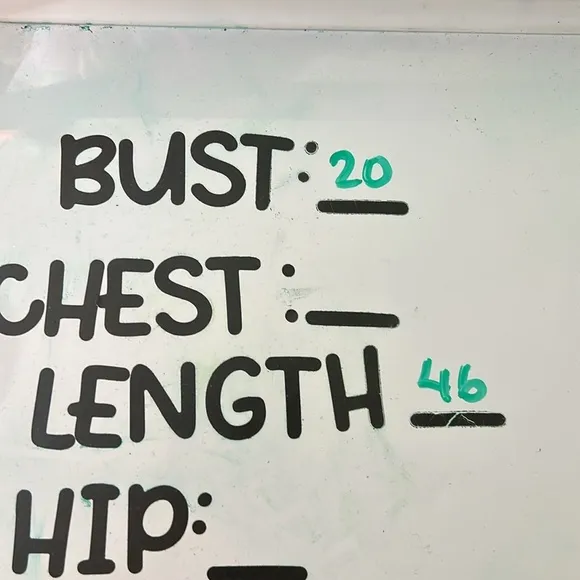 BUST: 20
CHEST:
LENGTH 46
HIP: